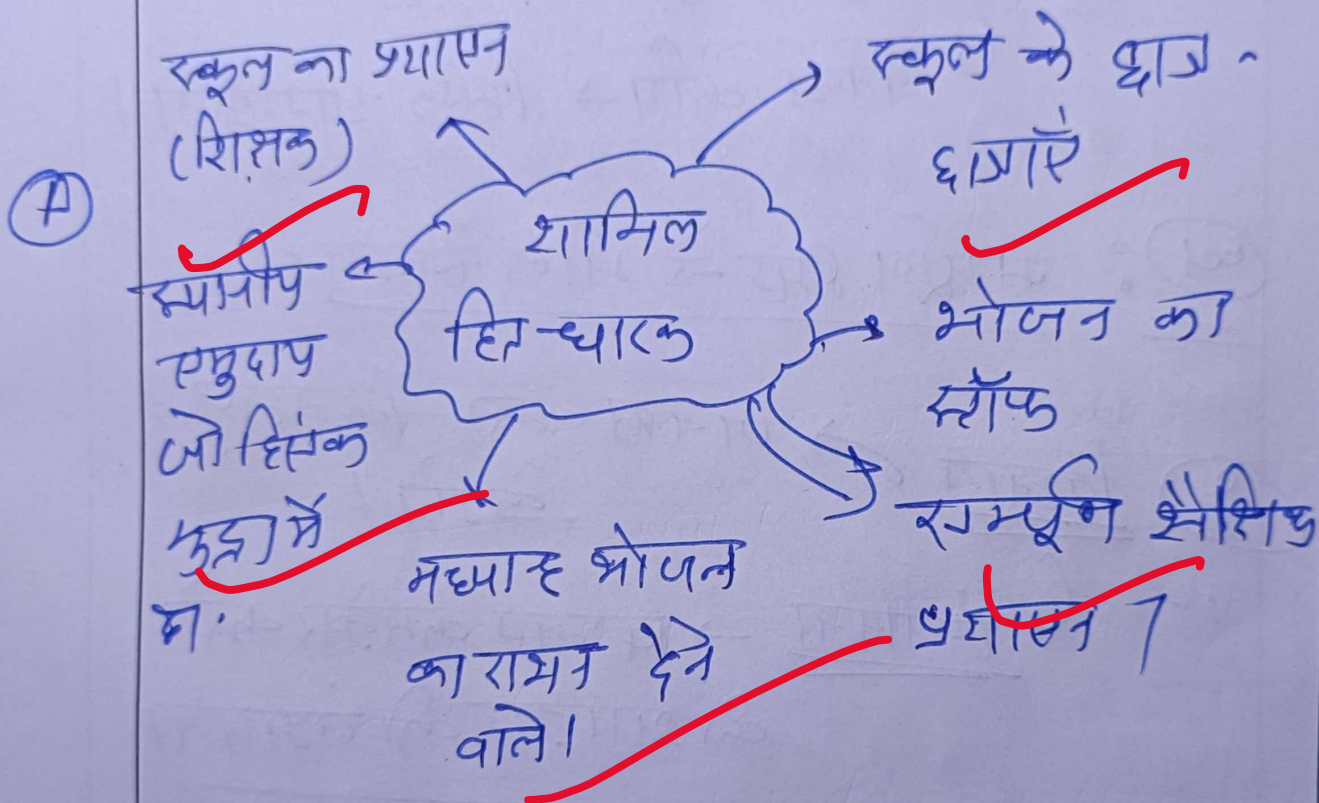 A
स्कूल का प्रशासन
(शिक्षक)
स्कूल के छात्र-
छात्राएँ
शामिल
हित-धारक
स्थानीय
समुदाय
जो हिंसक
मुद्रा में
भोजन का
स्टॉफ
सम्पूर्ण शैक्षिक
प्रशासन
मध्याह्न भोजन
का राशन देने
वाले।